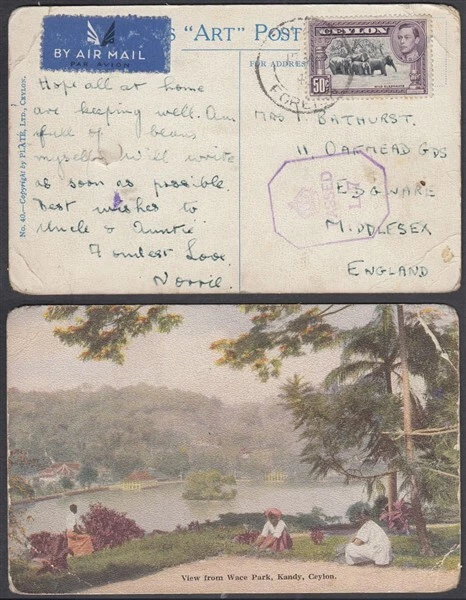 BY AIR MAIL
PAR AVION
"ART" POST
FOR ADDRES
CEYLON
50c
Hope all at home
are keeping well. Am
full of beans
myself. Will write
as soon as possible.
Best wishes to
Uncle & Auntie
Fondest Love
Norrie.
No. 40.—Copyright by PLÂTÉ, LTD., CEYLON.
BATHURST.
11, OAKMEAD GDS
EDGWARE
MIDDLESEX
ENGLAND
View from Wace Park, Kandy, Ceylon.